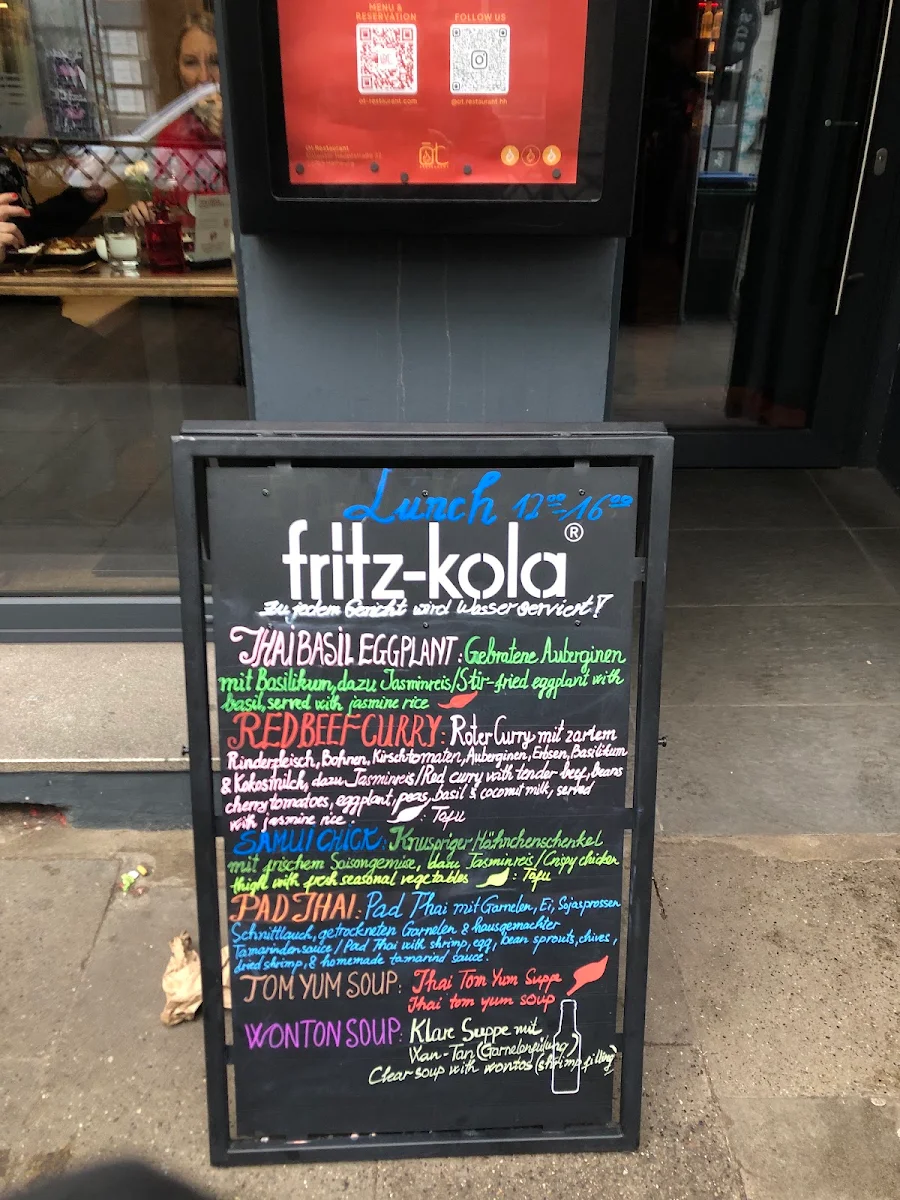 MENU &
RESERVATION
FOLLOW US
ot-restaurant.com
@ot.restaurant.hh
ōt
Lunch 12°°-16°°
fritz-kola®
Zu jedem Gericht wird Wasser serviert!
THAI BASIL EGGPLANT: Gebratene Auberginen
mit Basilikum, dazu Jasminreis/Stir-fried eggplant with
basil, served with jasmine rice
RED BEEF CURRY: Roter Curry mit zartem
Rinderfleisch, Bohnen, Kirschtomaten, Auberginen, Erbsen, Basilikum
& Kokosmilch, dazu Jasminreis/Red curry with tender beef, beans
cherry tomatoes, eggplant, peas, basil & coconut milk, served
with jasmine rice. : Tofu
SAMUI CHICK: Knuspriger Hähnchenschenkel
mit frischem Saisongemüse, dazu Jasminreis/Crispy chicken
thigh with fresh seasonal vegetables : Tofu
PAD THAI: Pad Thai mit Garnelen, Ei, Sojasprossen
Schnittlauch, getrockneten Garnelen & hausgemachter
Tamarindensauce / Pad Thai with shrimp, egg, bean sprouts, chives,
dried shrimp, & homemade tamarind sauce.
TOM YUM SOUP: Thai Tom Yum Suppe
Thai tom yum soup
WONTON SOUP: Klare Suppe mit
Wan-Tan (Garnelenfüllung)
Clear soup with wontos (shrimp filling)